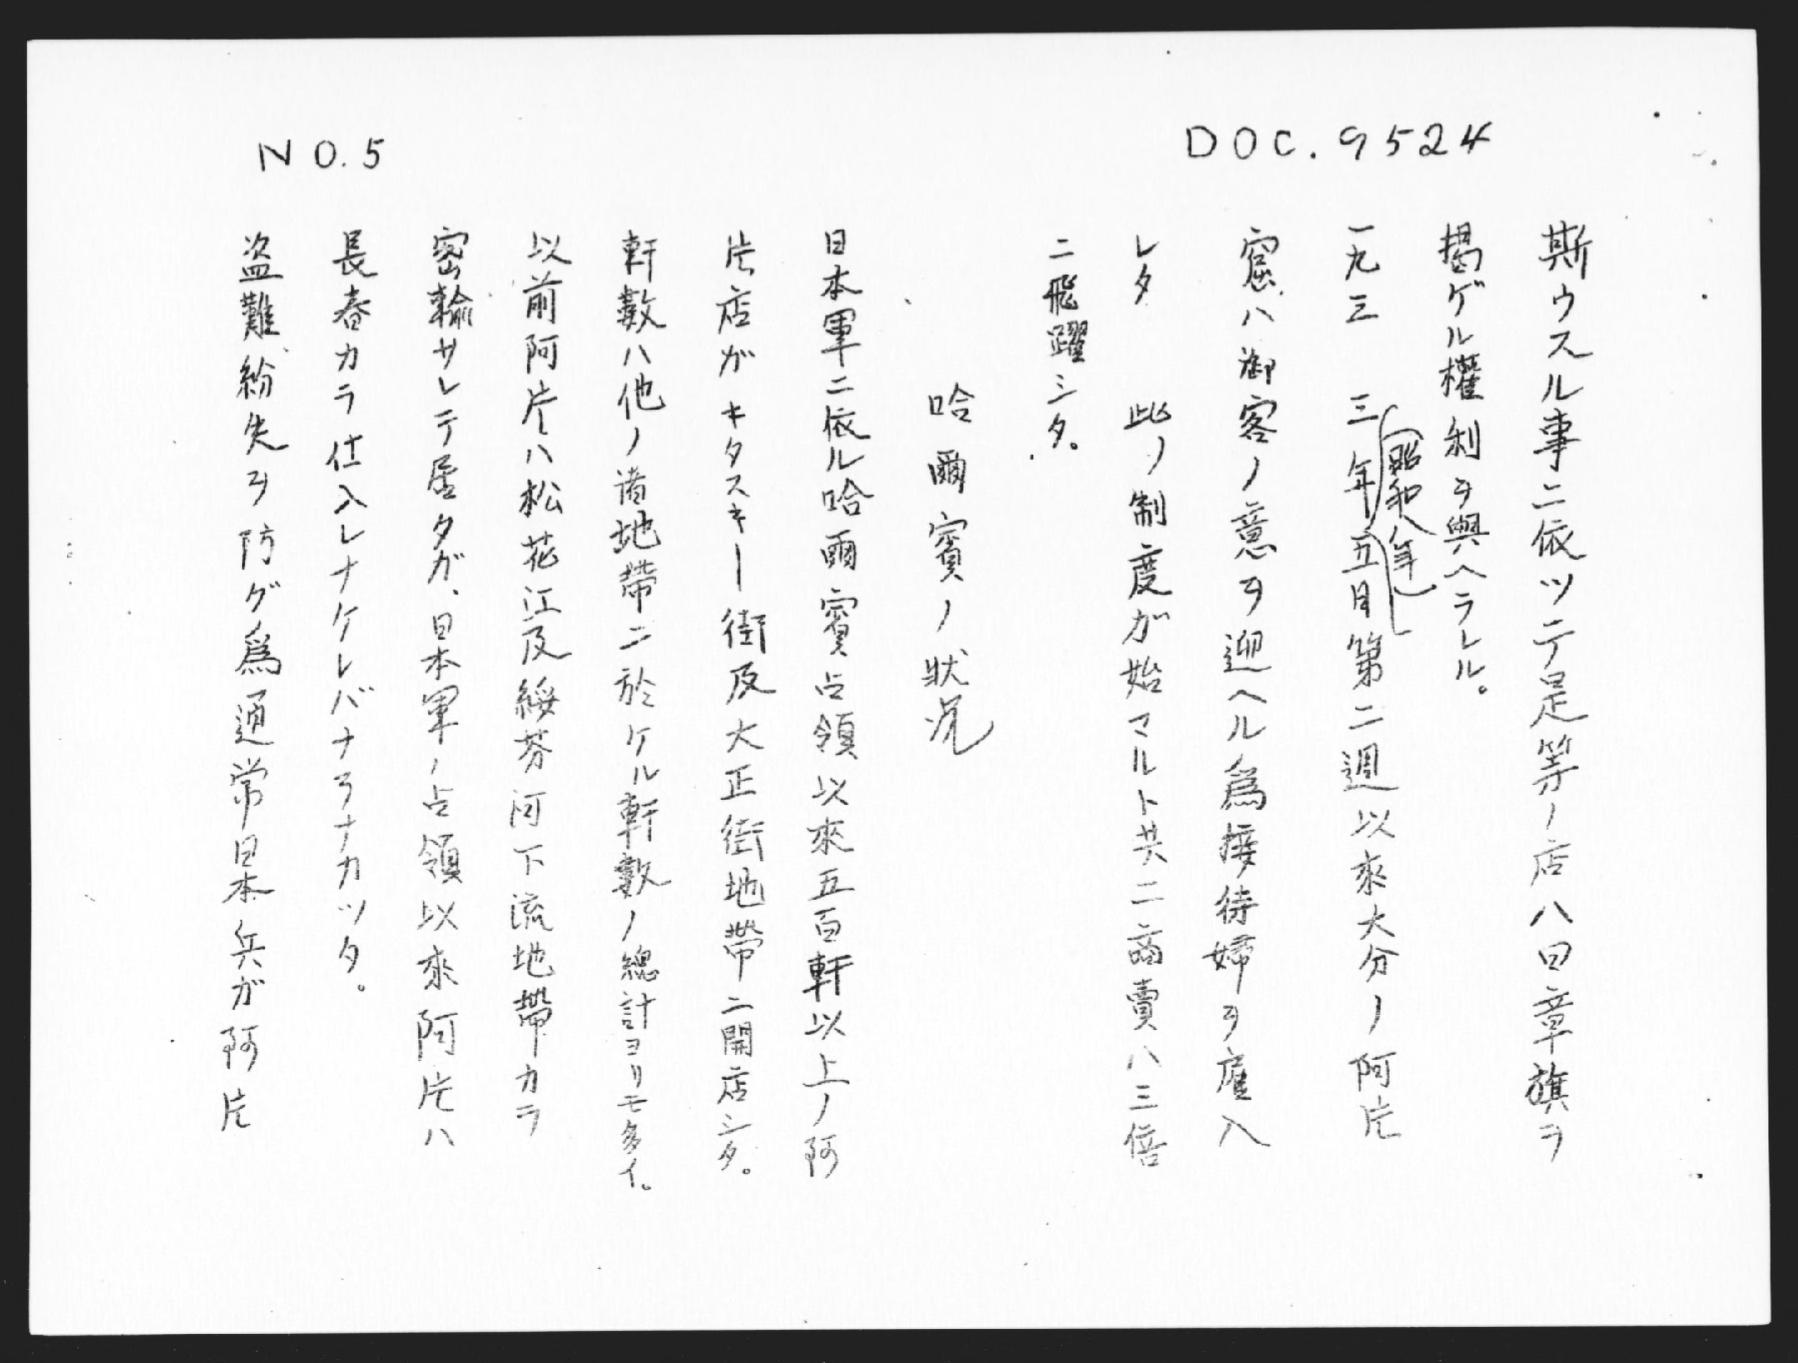 DOC. 9524
NO. 5
斯ウスル事ニ依ツテ是等ノ店ハ日章旗ヲ
揭ゲル權利ヲ與ヘラレル。
一九三三年(昭和八年)五月第二週以來大分ノ阿片
窟ハ御客ノ意ヲ迎ヘル爲接待婦ヲ雇入
レタ 此ノ制度ガ始マルト共ニ商賣ハ三倍
ニ飛躍シタ。
哈爾賓ノ狀况
日本軍ニ依ル哈爾賓占領以來五百軒以上ノ阿
片店ガキタスキー街及大正街地帶ニ開店シタ。
軒數ハ他ノ諸地帶ニ於ケル軒數ノ總計ヨリモ多イ。
以前阿片ハ松花江及綏芬河下流地帶カラ
密輸サレテ居タガ、日本軍ノ占領以來阿片ハ
長春カラ仕入レナケレバナラナカツタ。
盗難紛失ヲ防グ爲通常日本兵ガ阿片